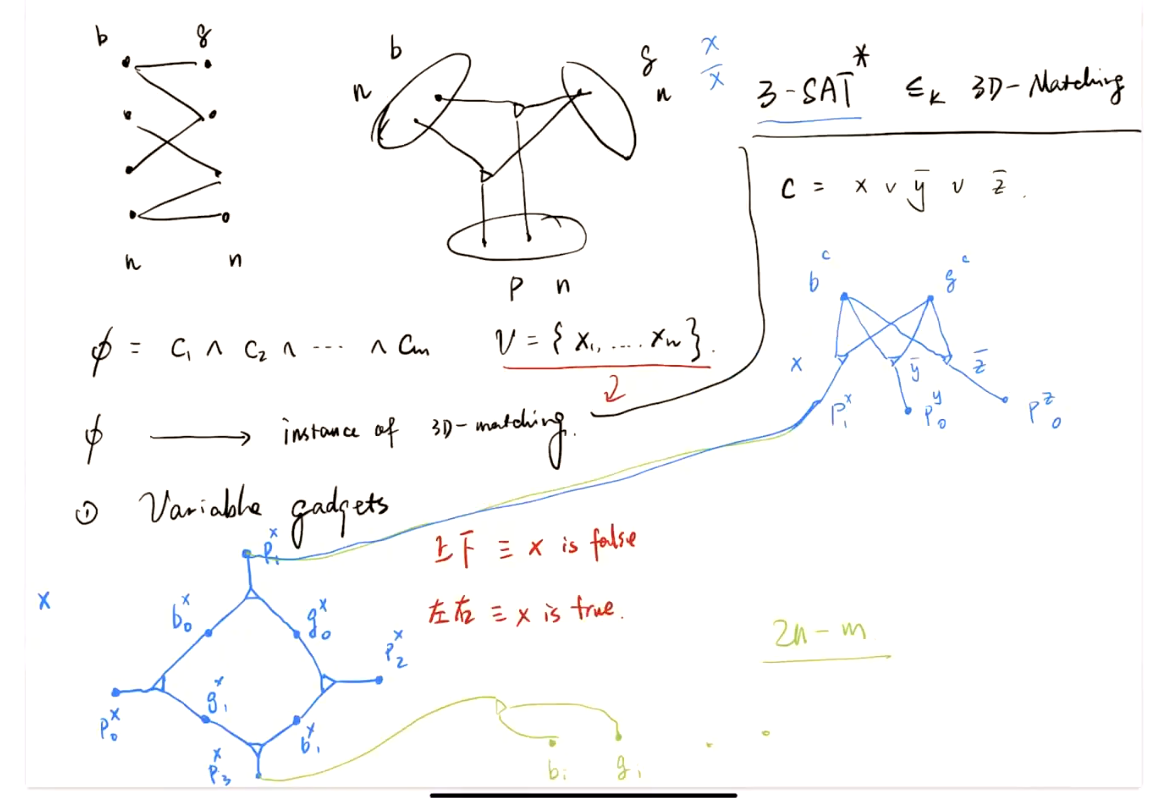 b g
n n
b g
n n
p n
x
x̄
3-SAT* ≤ₖ 3D-Matching
C = x ∨ ȳ ∨ z̄.
bᶜ gᶜ
x ȳ z̄
P₁ˣ P₀ʸ P₀ᶻ
ϕ = C₁ ∧ C₂ ∧ ··· ∧ Cm V = { x₁, .... xₙ }.
ϕ ⟶ instance of 3D-matching.
① Variable gadgets
P₁ˣ
上下 ≡ x is false
x
b₀ˣ g₀ˣ
左右 ≡ x is true.
P₂ˣ
2n - m
P₀ˣ g₁ˣ b₁ˣ
P₃ˣ
bᵢ gᵢ